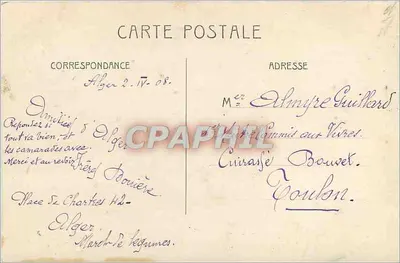 CARTE POSTALE
CORRESPONDANCE
Alger 2-IV-08.
Amitiés d'Alger
Repondez si
tout va bien, et
les camarades avec.
Merci et au revoir
Fréd Bouvière
Place de Chartres 42-
Alger
March de legumes.
ADRESSE
Mer Almyre Guillard
Commis aux Vivres.
Cuirassé Bouvet.
Toulon.
CPAPHIL